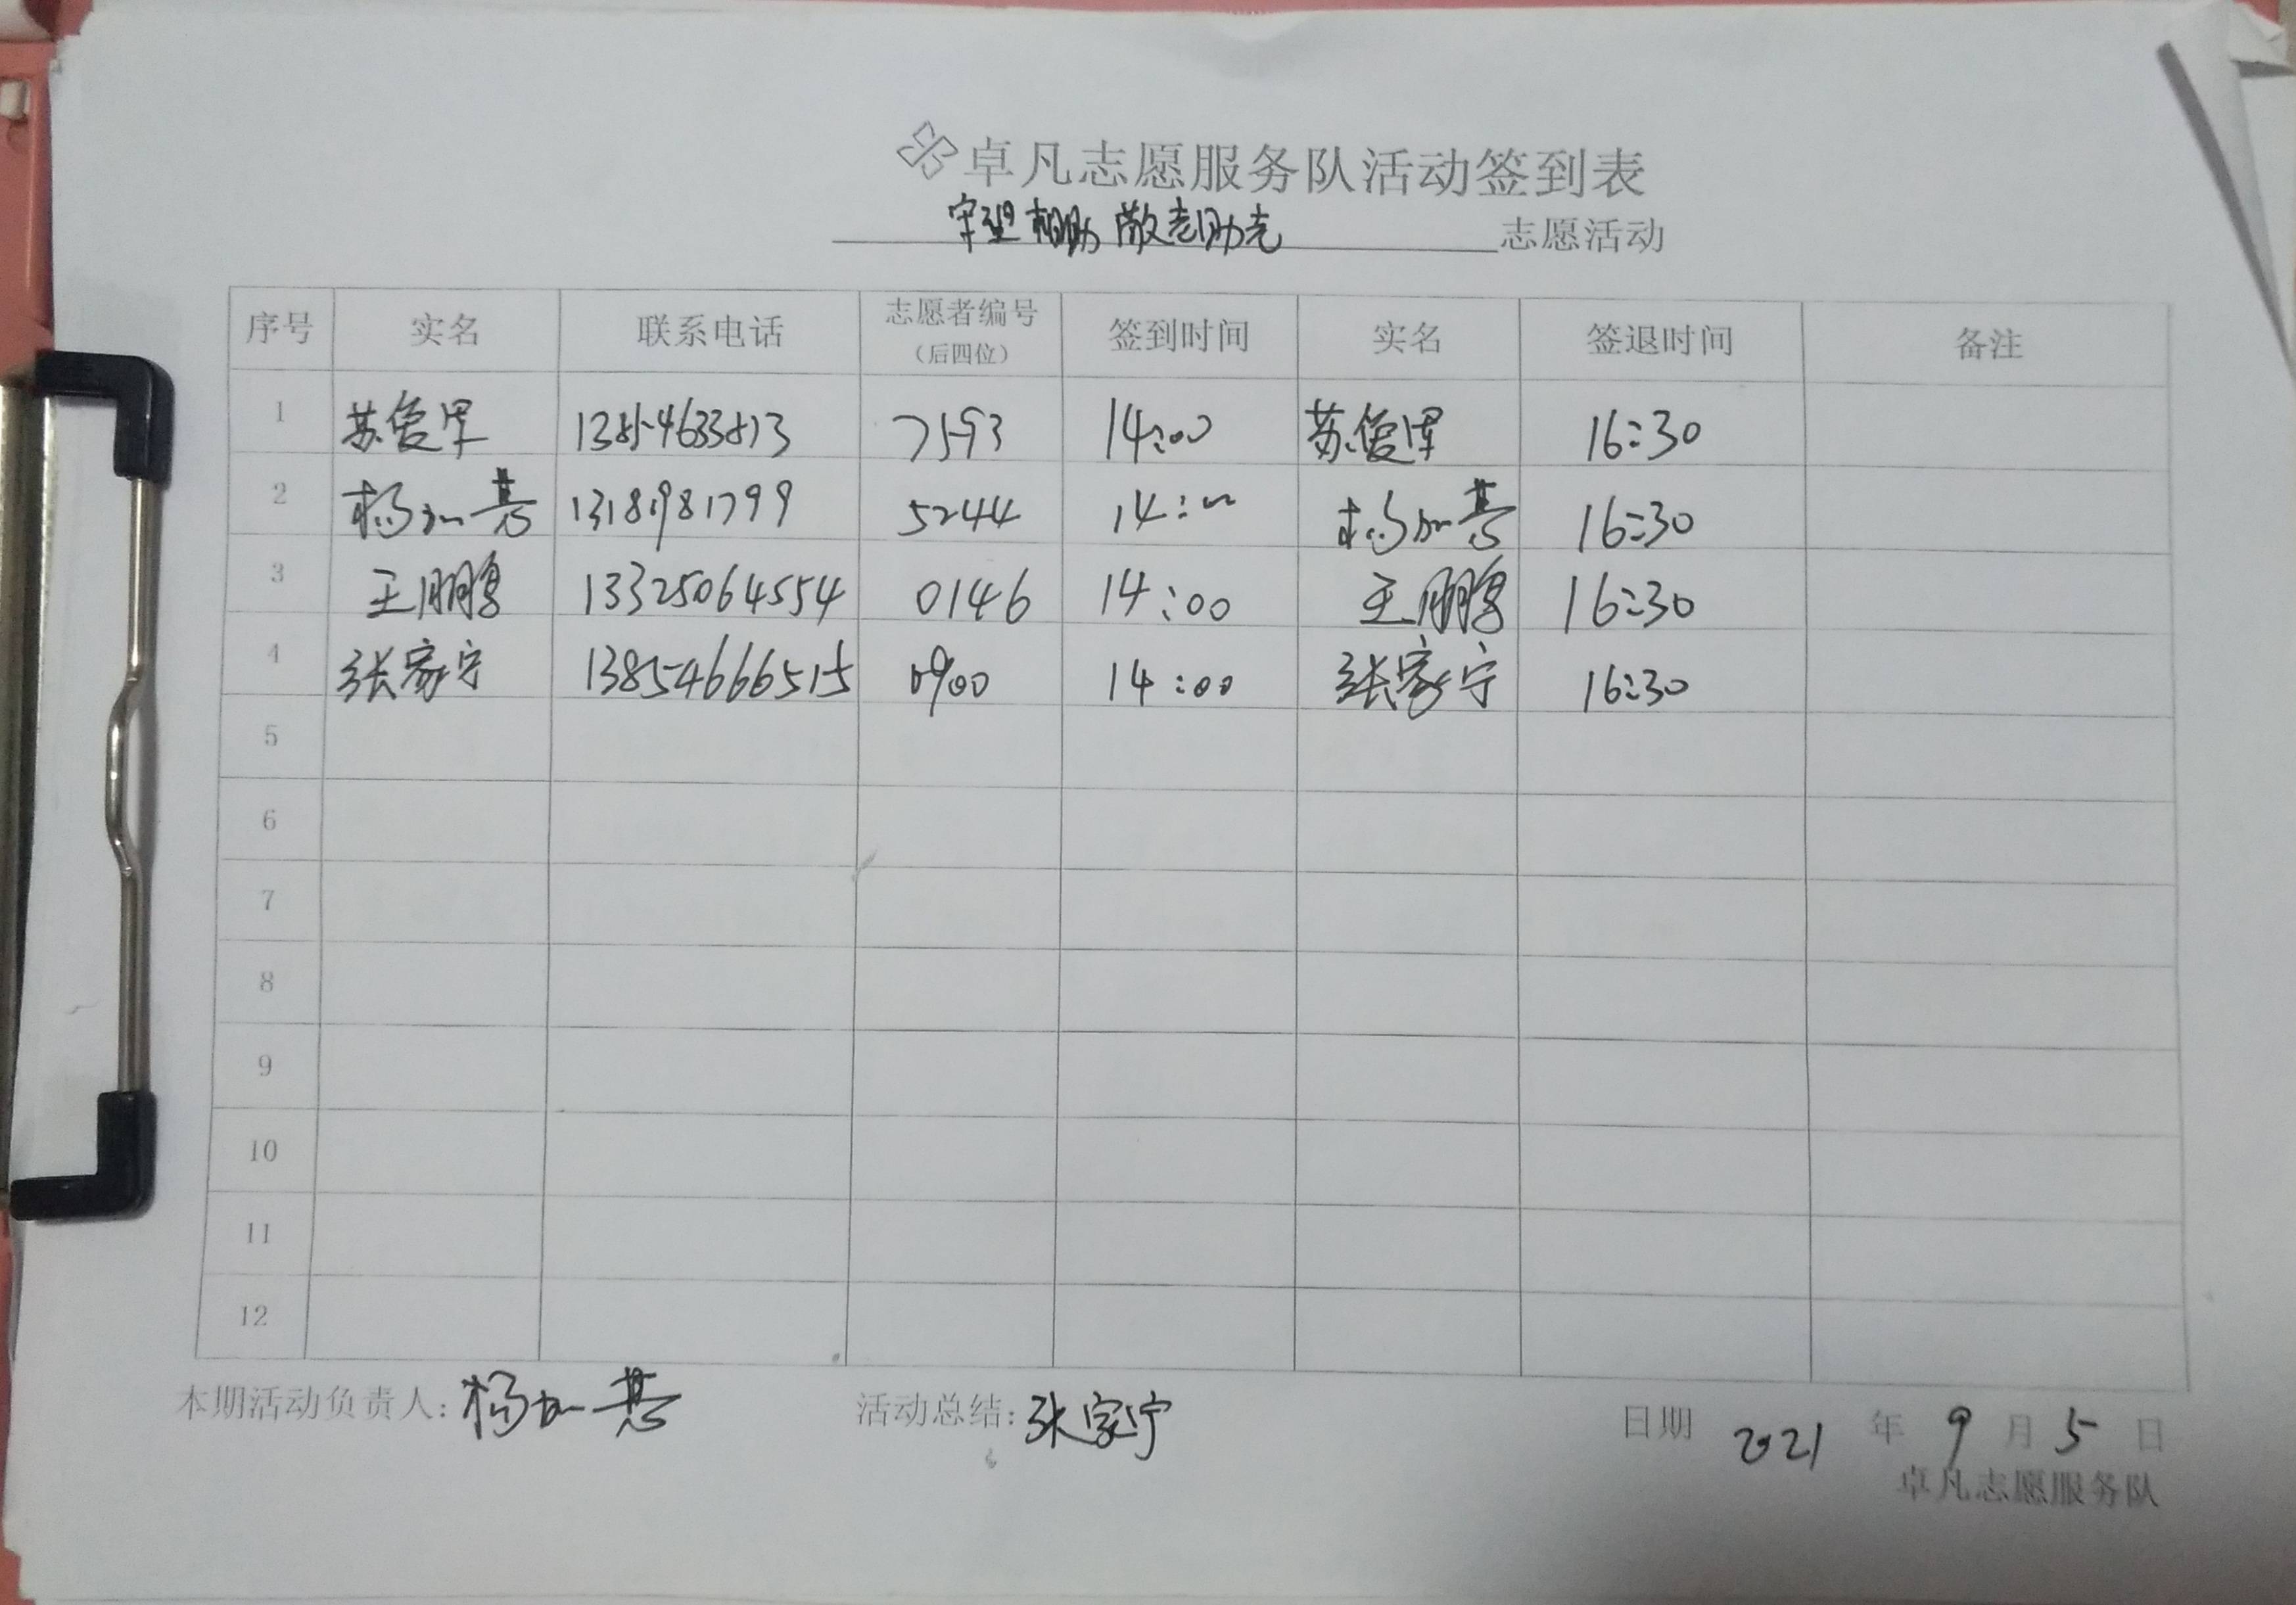 卓凡志愿服务队活动签到表
守望相助 敬老助老 志愿活动
序号 实名 联系电话 志愿者编号 签到时间 实名 签退时间 备注
（后四位）
1 苏俊 7593 14:00 苏俊 16:30
2 杨 5244 14:00 杨 16:30
3 王鹏 13325064554 0146 14:00 王鹏 16:30
4 张家宁 13854666515 0900 14:00 张家宁 16:30
5
6
7
8
9
10
11
12
本期活动负责人: 杨 活动总结: 张家宁 日期 2021 年 9 月 5 日
卓凡志愿服务队